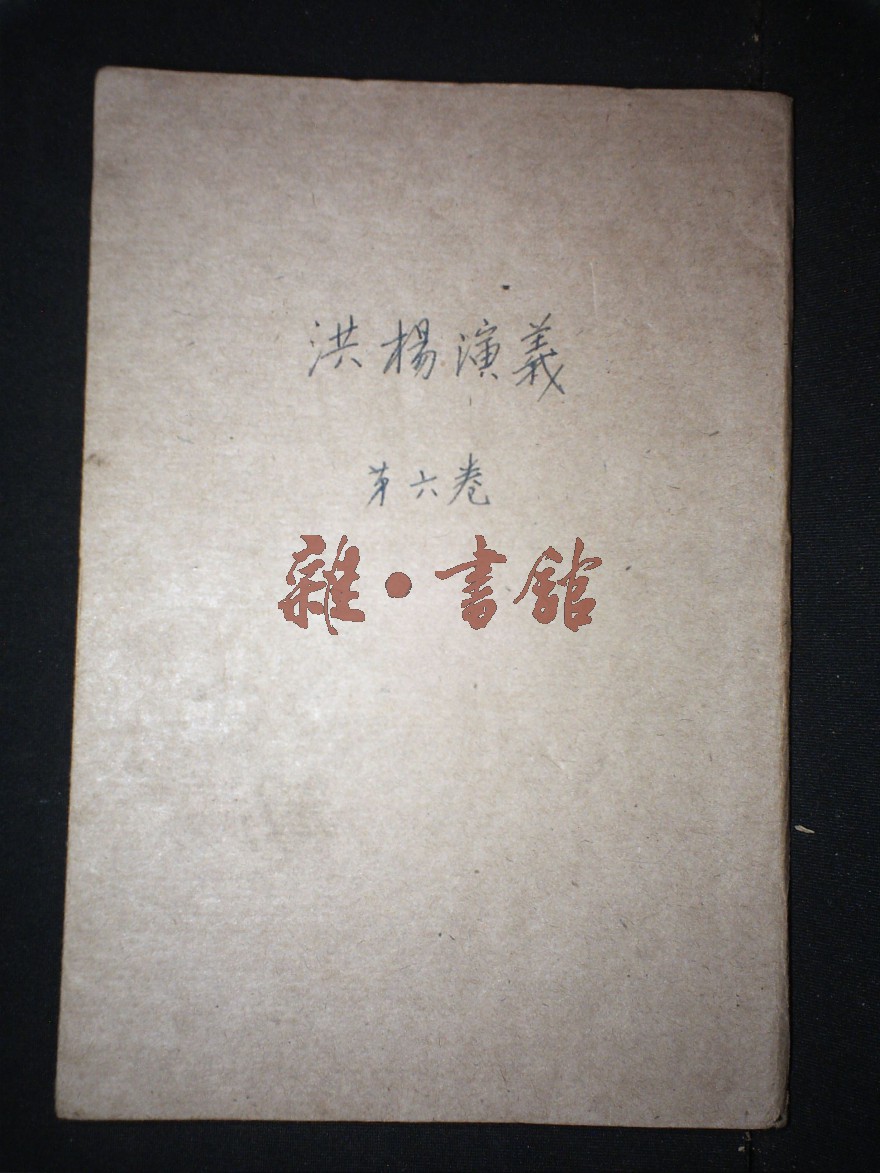 洪楊演義
第六卷
雜·書館